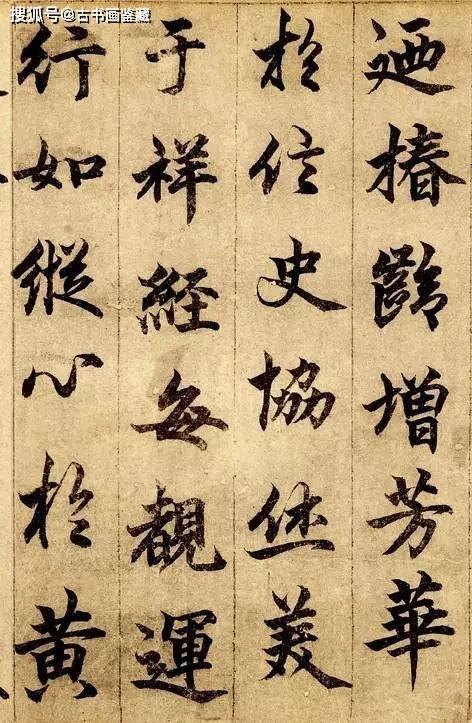 搜狐号@古书画鉴藏
迺椿齡增芳華
於信史協休美
于祥經每觀運
行如縱心於黃